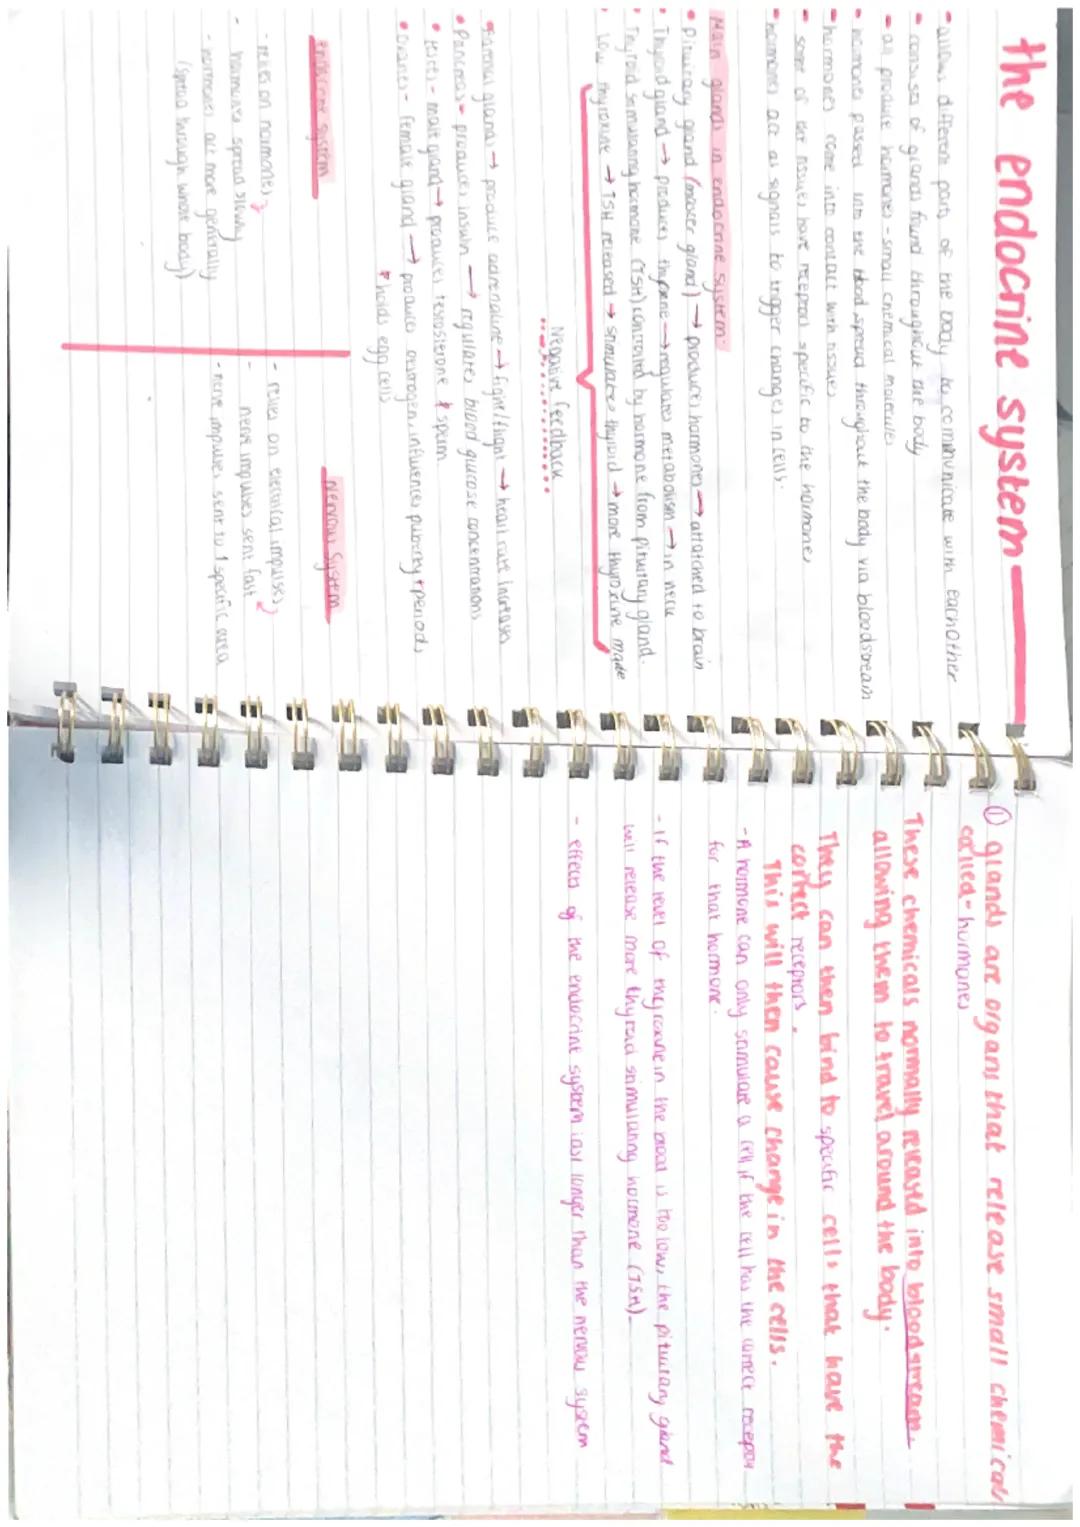 the endocrine system
• allows different parts of the body to communicate with eachother
• consists of glands found throughout the body
• all produce hormones - small chemical molecules
• hormones passed into the blood, spread throughout the body via bloodstream
• hormones come into contact with tissues
• some of the tissues have receptors specific to the hormones
• hormones act as signals to trigger changes in cells.
Main glands in endocrine system:
• pituitary gland (master gland) → produces hormones → attatched to brain
• Thyroid gland → produces → regulates metabolism → in neck
• Thyroid stimulating hormone (TSH) controlled by hormone from pituitary gland.
• Low thyroxine → TSH released → stimulates thyroid → more thyroxine made
Negative feedback
glands → produce adrenaline → fight/flight → heart rate increases
• Pancreas → produces insulin → regulates blood glucose concentrations
• - male gland → produces testosterone & sperm
• Ovaries - female gland → produces oestrogen, influences puberty & periods
holds egg cells
endocrine system
- relies on hormones
- hormones spread slowly
- hormones act more generally
(spread through whole body)
Nervous System
- relies on eletrical impulses
- nerve impulses sent fast
- nerve impulses sent to 1 specific area
① glands are organs that release small chemicals
called - hormones
These chemicals normally released into bloodstream.
allowing them to travel around the body.
They can then bind to specific cells that have the
correct receptors.
This will then cause change in the cells.
- A hormone can only stimulate a cell if the cell has the correct receptor
for that hormone.
- If the level of in the blood is too low, the pituitary gland
will release more stimulating hormone (TSH).
- effects of the endocrine system last longer than the nervous system